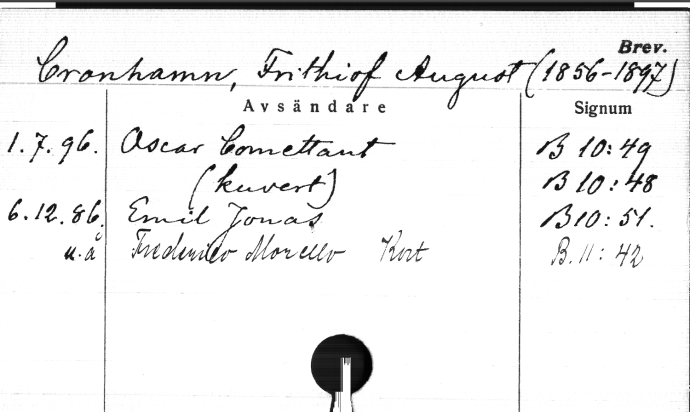 Brev.
Cronhamn, Frithiof August (1856-1897)
Avsändare Signum
1.7.96. Oscar Comettant B 10:49
(kuvert) B 10:48
6.12.86. Emil Jonas B 10:51.
u.å Morello Kort B.11:42